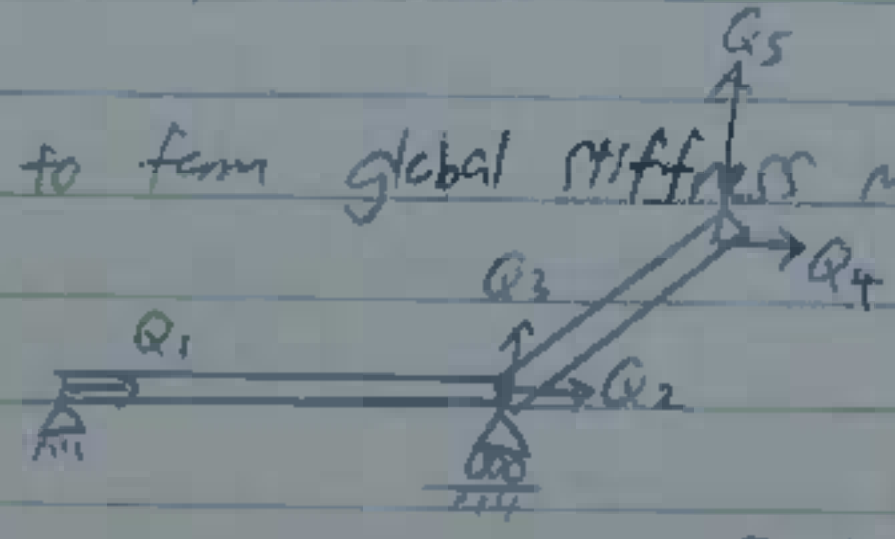 Q5
to form global stiffness
Q3
Q4
Q1
Q2